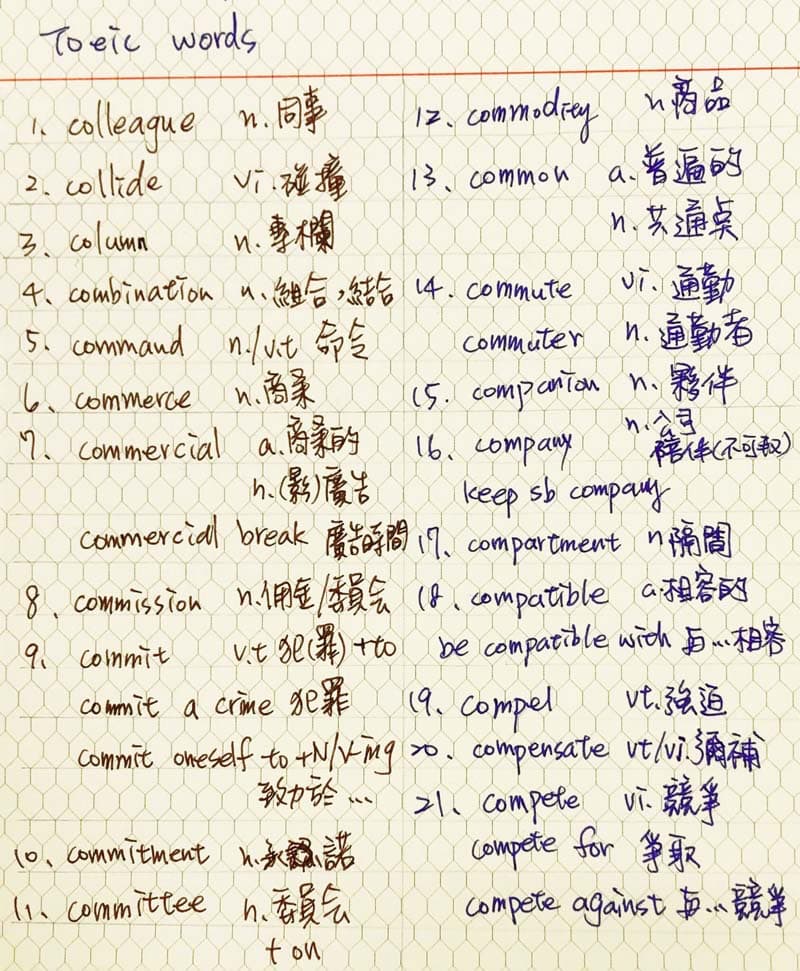 Toeic words
1、colleague n.同事
2、collide vi.碰撞
3、column n.專欄
4、combination n.組合,結合
5、command n./v.t 命令
6、commerce n.商業
7、commercial a.商業的
n.(影)廣告
commercial break 廣告時間
8、commission n.佣金/委員会
9、commit v.t 犯(罪)+to
commit a crime 犯罪
commit oneself to +N/V-ing
致力於…
10、commitment n.承諾
11、committee n.委員会
+ on
12、commodity n商品
13、common a.普遍的
n.共通点
14、commute vi.通勤
commuter n.通勤者
15、companion n.夥伴
16、company n.公司
陪伴(不可数)
keep sb company
17、compartment n隔間
18、compatible a.相容的
be compatible with 与…相容
19、compel vt.強迫
20、compensate vt/vi.彌補
21、compete vi.競爭
compete for 爭取
compete against 与…競爭